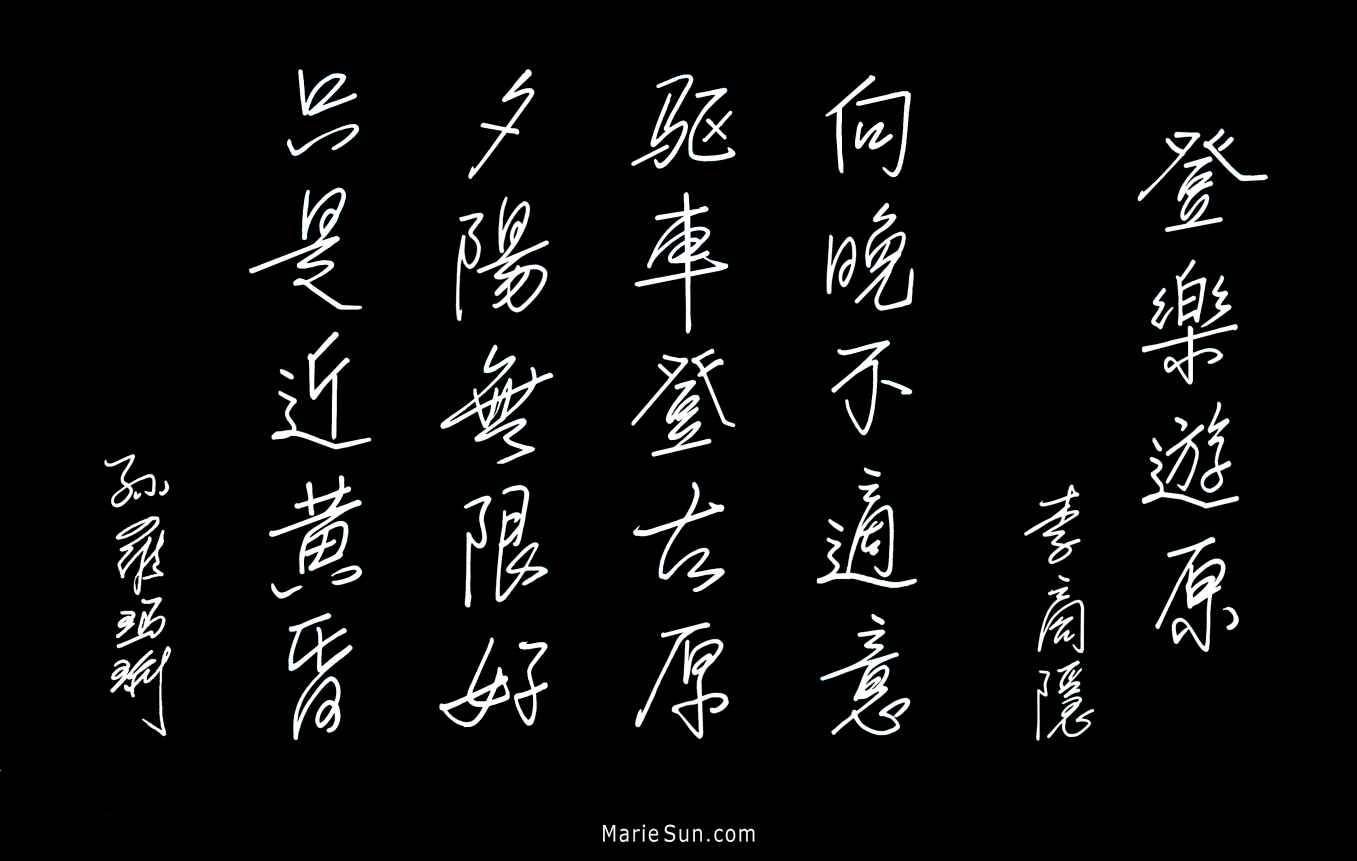 登樂遊原
李商隱
向晚不適意
驅車登古原
夕陽無限好
只是近黃昏
孫羅瑪琍
MarieSun.com